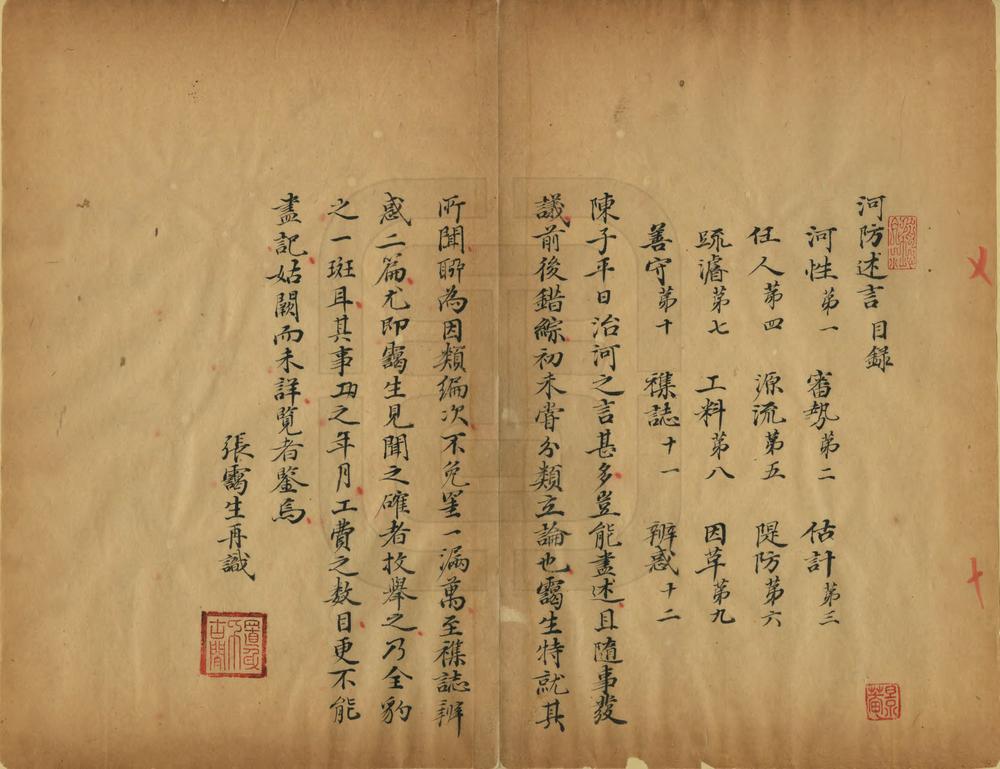 河防述言目錄
河性第一 審勢第二 估計第三
任人第四 源流第五 隄防第六
疏濬第七 工料第八 因革第九
善守第十 襍誌十一 辨惑十二
陳子平日治河之言甚多豈能盡述且隨事發
議前後錯綜初未甞分類立論也靄生特就其
所聞聊為因類編次不免罣一漏萬至襍誌辨
惑二篇尤即靄生見聞之確者枚舉之乃全豹
之一斑耳其事功之年月工費之数目更不能
盡記姑闕而未詳覽者鑒焉
張靄生再識
景葵